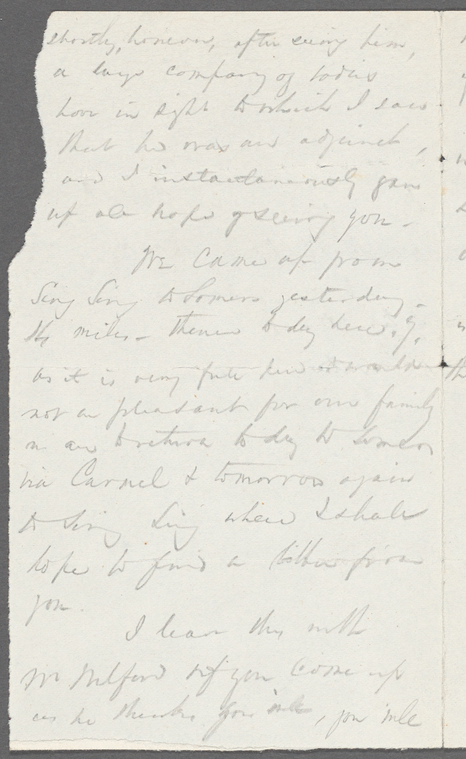 shortly, however, after seeing him,
a large company of ladies
hove in sight to which I saw
that he was an adjunct,
and I instantaneously gave
up all hope of seeing you -
We came up from
Sing Sing to Somers yesterday -
14 miles - thence to day here. 9,
as it is very full here &
not so pleasant for our family
we return to day to Somers
via Carmel & tomorrow again
to Sing Sing where I shall
hope to find a letter from
you.
I leave this with
Mr Milford & if you come up
as he thinks you will, you will